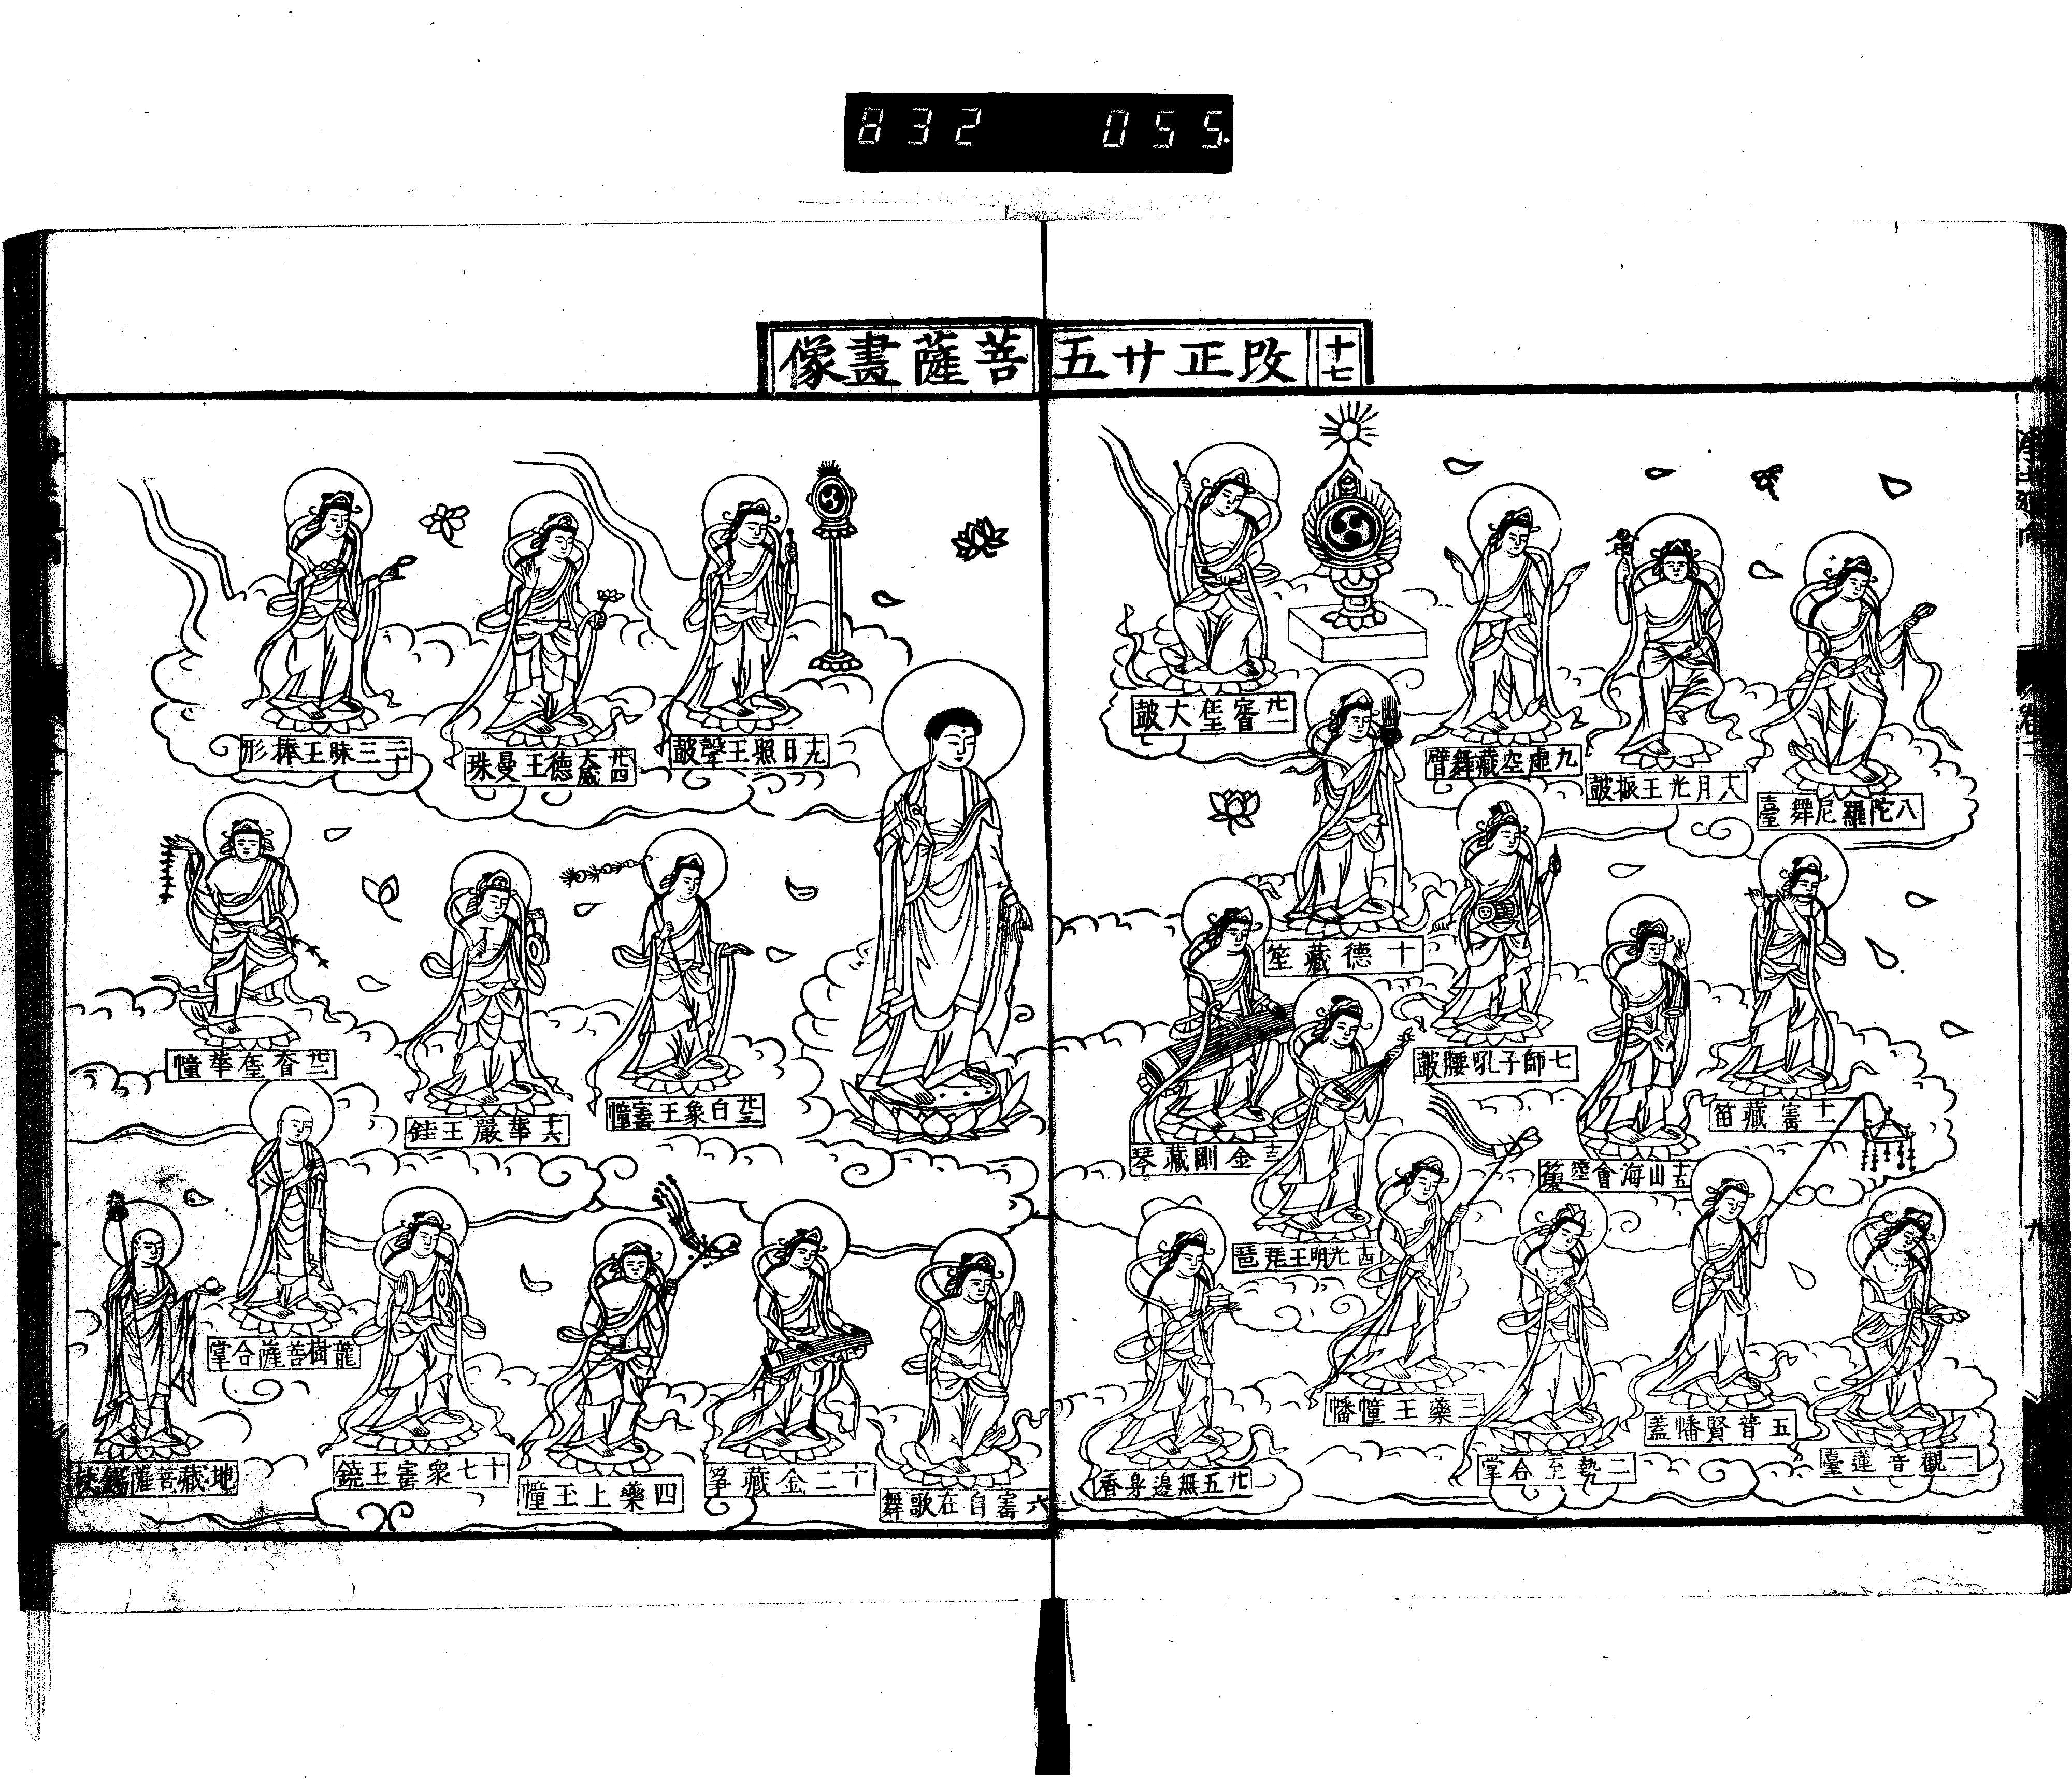 832 055
十七
改正廿五菩薩畫像
廿一寳𡉏大皷
九虛空藏舞臂
十八月光王振皷
八陀羅尼舞臺
十德藏笙
七師子吼腰皷
十一寳藏笛
十三金剛藏琴
十五山海會箜篌
十四光明王琵琶
廿五無邉身香
三藥王幢幡
二勢至合掌
五普賢幡蓋
一觀音蓮臺
二十三昧王棒形
廿四大威德王曼珠
十九日照王聲皷
十六華嚴王鈸
廿三白象王寳幢
龍樹菩薩合掌
地藏菩薩錫杖
十七衆寳王鐃
四藥上王幢
十二金藏箏
六寳自在歌舞
卷二
九